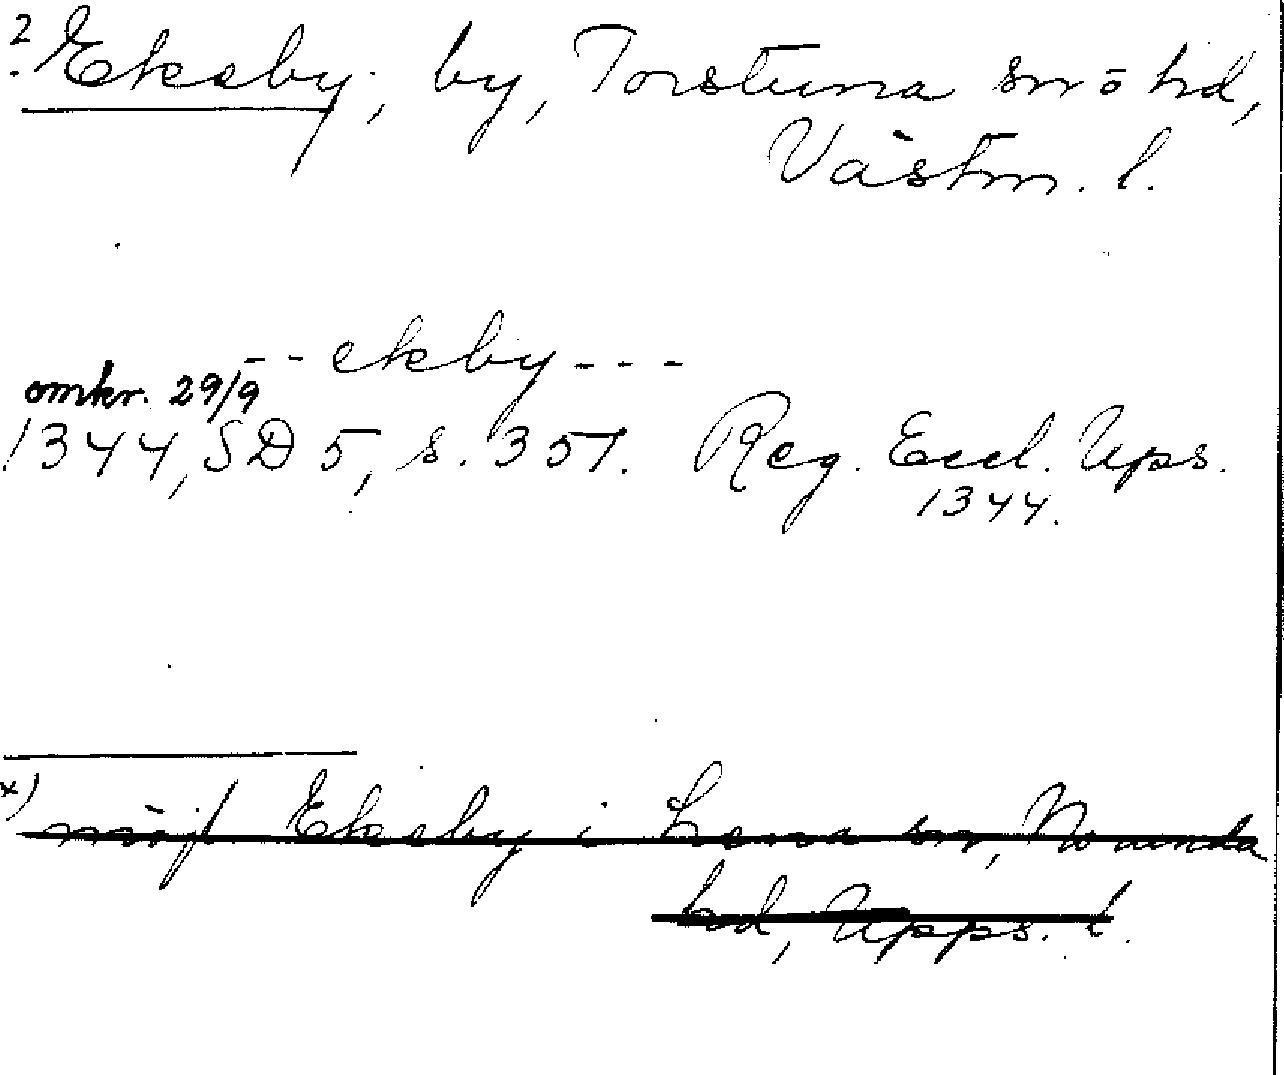 ? Ekeby, by, Torstuna sn o hd,
Västm. l.
-- ekeby ---
omkr. 29/9
1344, SD 5, s. 357. Reg. Eccl. Ups.
1344.
x) möjl Ekeby i Lena sn, Norunda
hd, Upps. l.